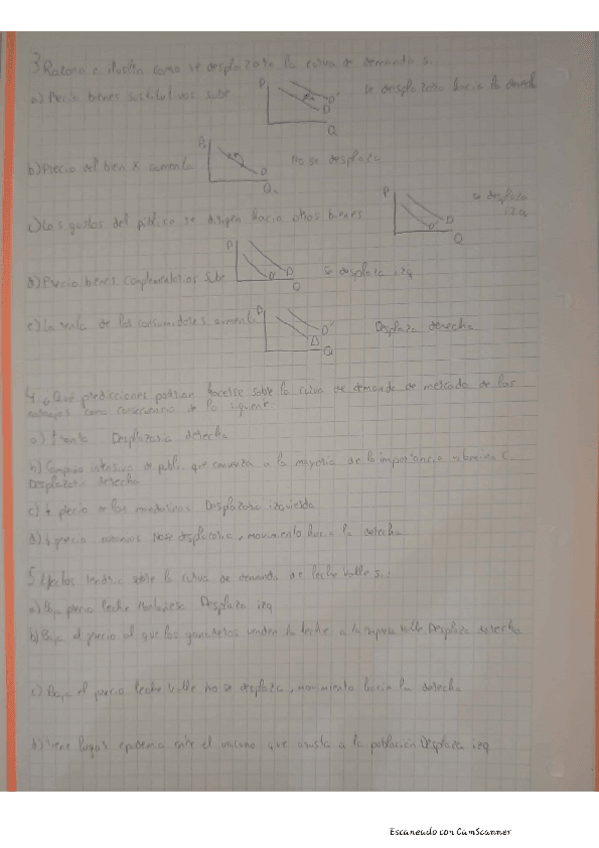 3 Razona e ilustra como se desplazaría la curva de demanda si.
a) Precio bienes sustitutivos sube
P
D'
D
Q
se desplaza hacia la derecha
b) Precio del bien X aumenta
P
D
Q
No se desplaza
c) Los gustos del público se dirigen hacia otros bienes
P
D
D'
Q
se desplaza
izq
d) Precio bienes complementarios sube
P
D'
D
Q
se desplaza izq
e) La renta de los consumidores aumenta
P
D'
D
Q
Desplaza derecha
4 ¿Qué predicciones podrían hacerse sobre la curva de demanda de mercado de las
naranjas como consecuencia de lo siguiente
a) ↑ renta Desplazaría derecha
b) Campaña intensiva de publi. que convenza a la mayoría de la importancia vitamina C
Desplazaría derecha
c) ↓ precio de las mandarinas Desplazaría izquierda
d) ↓ precio naranjas No se desplazaría, movimiento hacia la derecha
5 Efectos tendría sobre la curva de demanda de leche Valle si:
a) Baja precio leche Desplaza izq
b) Baja el precio al que los ganaderos venden la leche a la empresa Valle Desplaza derecha
c) Baja el precio leche Valle No se desplaza, movimiento hacia la derecha
d) Tiene lugar epidemia entre el vacuno que asusta a la población Desplaza izq
Escaneado con CamScanner